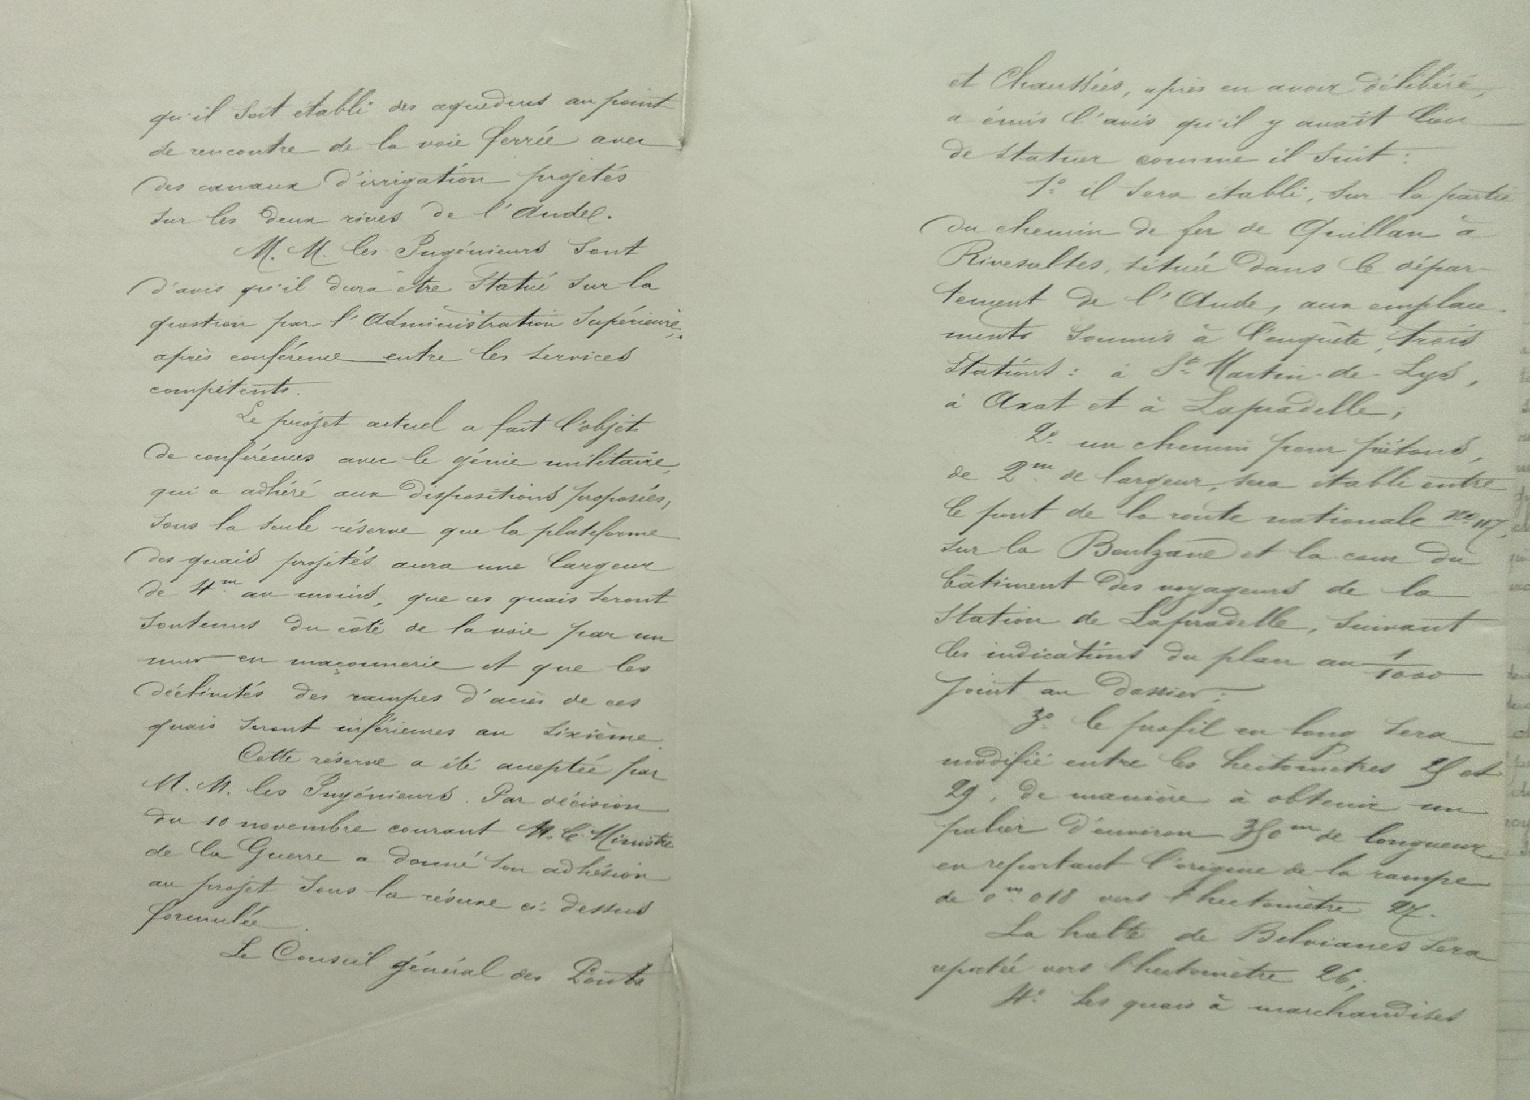 qu'il soit établi des aqueducs au point
de rencontre de la voie ferrée avec
des canaux d'irrigation projetés
sur les deux rives de l'Aude.
M. M. les Ingénieurs sont
d'avis qu'il devra être statué sur la
question par l'Administration Supérieure,
après conférence entre les services
compétents.
Le projet actuel a fait l'objet
de conférences avec le génie militaire,
qui a adhéré aux dispositions proposées,
sous la seule réserve que la plateforme
des quais projetés aura une largeur
de 4m au moins, que ces quais seront
soutenus du côté de la voie par un
mur en maçonnerie et que les
déclivités des rampes d'accès de ces
quais seront inférieures au sixième.
Cette réserve a été acceptée par
M. M. les Ingénieurs. Par décision
du 10 novembre courant M. le Ministre
de la Guerre a donné son adhésion
au projet sous la réserve ci-dessus
formulée.
Le Conseil général des Ponts
et Chaussées, après en avoir délibéré,
a émis l'avis qu'il y avait lieu
de statuer comme il suit :
1° il sera établi, sur la partie
du chemin de fer de Quillan à
Rivesaltes, située dans le dépar-
tement de l'Aude, aux emplace-
ments soumis à l'enquête, trois
stations : à St Martin-de-Lys,
à Axat et à Lapradelle ;
2° un chemin pour piétons,
de 2m de largeur, sera établi entre
le pont de la route nationale No 117,
sur la Boulzane et la cour du
bâtiment des voyageurs de la
station de Lapradelle, suivant
les indications du plan au 1/1000
joint au dossier ;
3° le profil en long sera
modifié entre les hectomètres 25 et
29, de manière à obtenir un
palier d'environ 350m de longueur
en reportant l'origine de la rampe
de 0m 018 vers l'hectomètre 27.
La halte de Belvianes sera
vers l'hectomètre 26 ;
4° les quais à marchandises